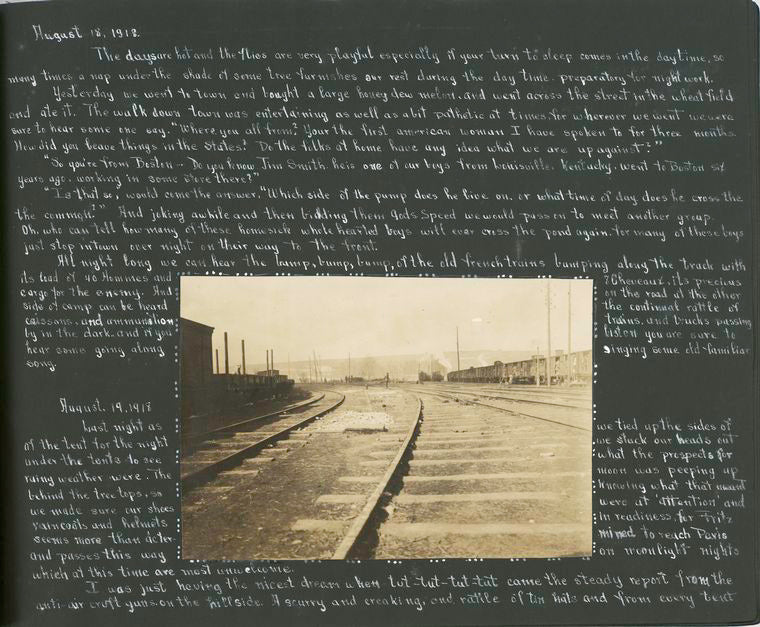 August 18, 1918.
The days are hot and the flies are very playful especially if your turn to sleep comes in the day time, so
many times a nap under the shade of some tree furnishes our rest during the day time. preparatory for night work.
Yesterday we went to town and bought a large honey dew melon. and went across the street in the wheat field
and ate it. The walk down town was entertaining as well as a bit pathetic at times, for wherever we went we were
sure to hear some one say. "Where you all from? Your the first american woman I have spoken to for three months.
How did you leave things in the states? Do the folks at home have any idea what we are up against?"
"So you're from Boston - Do you know Jim Smith. he is one of our boys from Louisville. Kentucky. went to Boston six
years ago. working in some store there?"
"Is that so, would come the answer, "Which side of the pump does he live on. or what time of day does he cross the
the common?" And joking awhile and then bidding them Gods speed we would pass on to meet another group.
Oh, who can tell how many of these homesick whole hearted boys will ever cross the pond again. for many of these boys
just stop in town over night on their way to the front.
All night long we can hear the bump, bump, bump, of the old french trains bumping along the track with
its load of 40 Hommes and 7 Cheveaux, its precious
cargo for the enemy. And on the road at the other
side of camp can be heard the continual rattle of
caissons, and ammunition trains, and trucks passing
by in the dark. and if you listen you are sure to
hear some going along singing some old familiar
song.
August. 19, 1918
Last night as we tied up the sides of
of the tent for the night we stuck our heads out
under the tents to see what the prospects for
rainy weather were. The moon was peeping up
behind the tree tops, so Knowing what that meant
we made sure our shoes were at 'attention' and
raincoats and helmets in readiness, for Fritz
seems more than deter- mined to reach Paris
and passes this way on moonlight nights
which at this time are most unwelcome.
I was just having the nicest dream when tut-tut-tat-tat came the steady report from the
anti-air craft guns. on the hillside. A scurry and creaking, and rattle of tin hats and from every tent